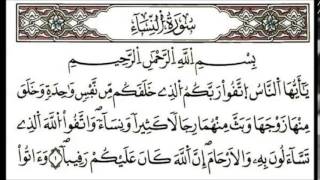 سُورَةُ النِّسَاءِ
بِسْمِ اللَّهِ الرَّحْمَٰنِ الرَّحِيمِ
يَٰٓأَيُّهَا النَّاسُ اتَّقُواْ رَبَّكُمُ الذِے خَلَقَكُم مِّن نَّفْسٖ وَٰحِدَةٖ وَخَلَقَ
مِنْهَا زَوْجَهَا وَبَثَّ مِنْهُمَا رِجَالاٗ كَثِيراٗ وَنِسَآءٗۖ وَاتَّقُواْ اللَّهَ الذِے
تَسَّآءَلُونَ بِهِۦ وَالْأَرْحَامَۖ إِنَّ اللَّهَ كَانَ عَلَيْكُمْ رَقِيباٗۖ ١ وَءَاتُواْ